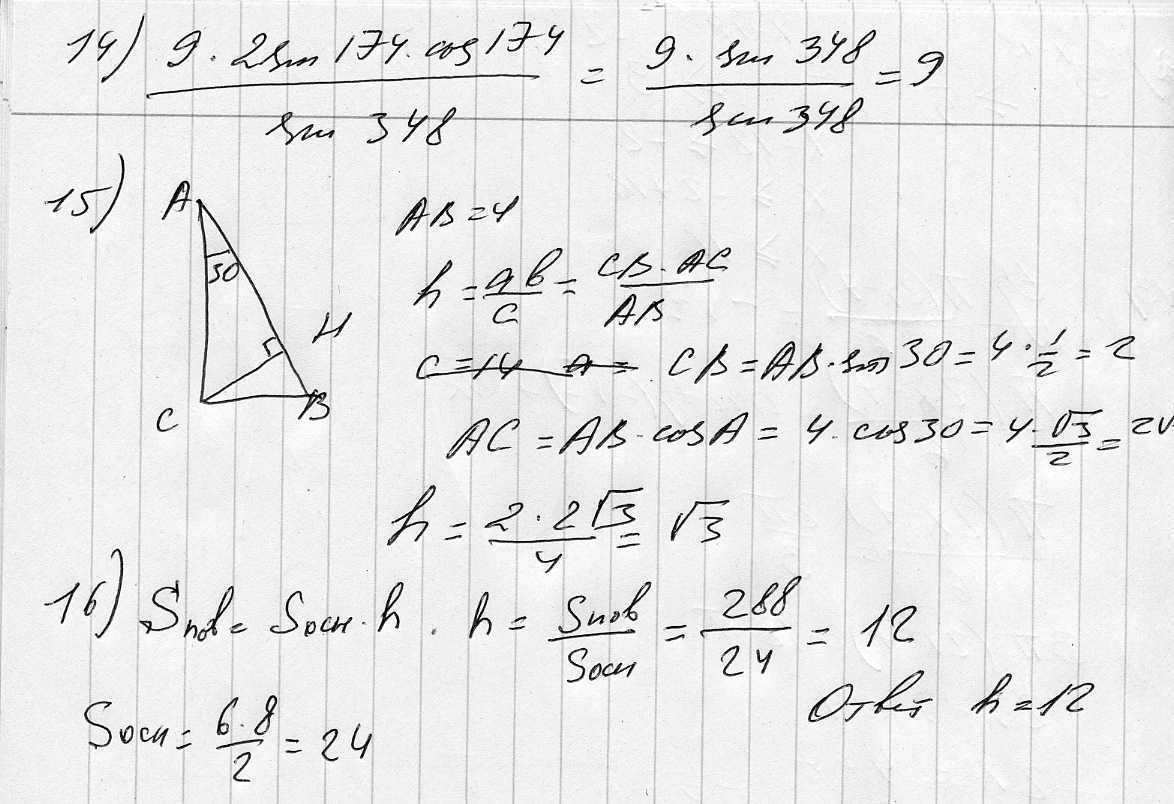 14) 9 · 2sin 174 · cos 174 / sin 348 = 9 · sin 348 / sin 348 = 9
15) A 30 H C B
AB = 4
h = ab/c = CB · AC / AB
c = 14 a = CB = AB · sin 30 = 4 · 1/2 = 2
AC = AB · cos A = 4 · cos 30 = 4 · √3/2 = 2√
h = 2 · 2√3 / 4 = √3
16) Sпов = Sосн · h . h = Sпов/Sосн = 288/24 = 12
Ответ h = 12
Sосн = 6 · 8 / 2 = 24